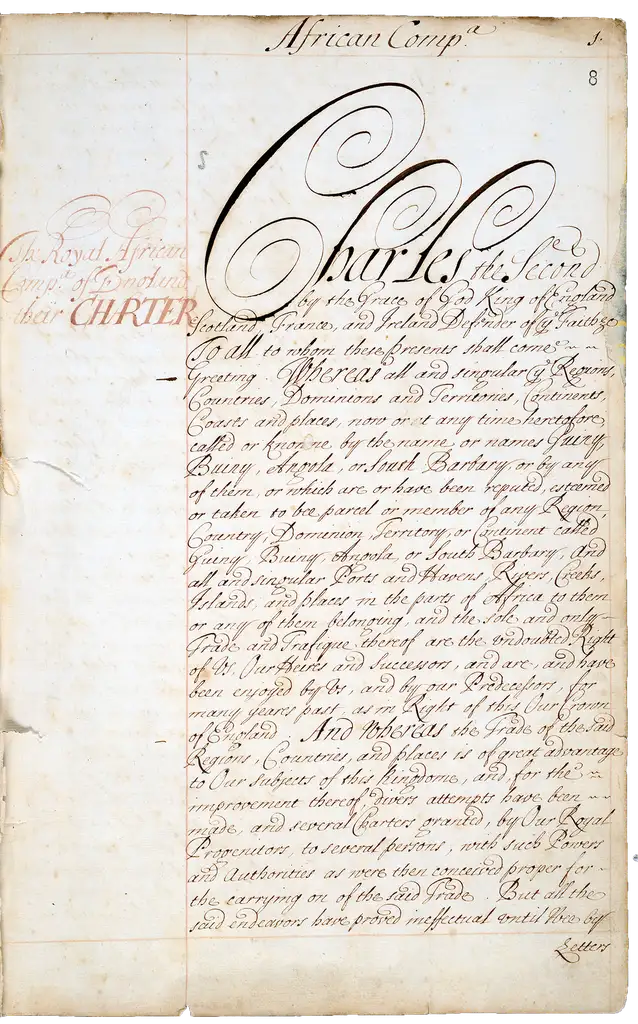 African Comp.a
1.
8
The Royal African
Comp.a of England
their CHARTER
Charles the Second
by the Grace of God King of England
Scotland, France, and Ireland Defender of ye Faith &c
To all to whom these presents shall come
Greeting. Whereas all and singular ye Regions,
Countries, Dominions and Territories, Continents,
Coasts and places, now or at any time heretofore
called or knowne by the name or names Guiny,
Buiny, Angola, or South Barbary, or by any
of them, or which are or have been reputed, esteemed
or taken to bee parcel or member of any Region,
Country, Dominion, Territory, or Continent called
Guiny, Buiny, Angola, or South Barbary, And
all and singular Ports and Havens, Rivers, Creeks,
Islands, and places in the parts of Africa to them
or any of them belonging, and the sole and only
Trade and Trafique thereof are the undoubted Right
of Us, Our Heires and Successors, and are, and have
been enjoyed by Us, and by our Predecessors, for
many yeares past, as in Right of this Our Crown
of England. And Whereas the Trade of the said
Regions, Countries, and places is of great advantage
to Our Subjects of this Kingdome, and, for the
improvement thereof, divers attempts have been
made, and several Charters granted, by Our Royal
Progenitors, to several persons, with such Powers
and Authorities as were then conceived proper for
the carrying on of the said Trade. But all the
said endeavors have proved ineffectual until Wee by
Letters